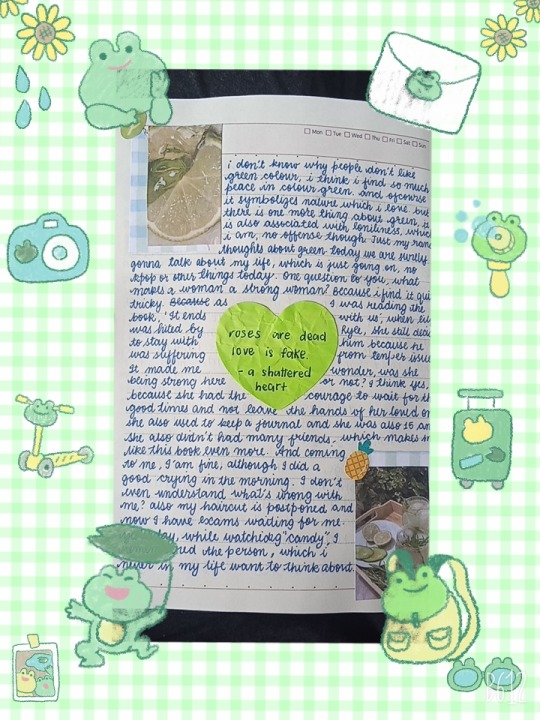 Mon Tue Wed Thu Fri Sat Sun
i don't know why people don't like
green colour, i think i find so much
peace in colour green. and ofcourse
it symbolizes nature which i love but
there is one more thing about green, it
is also associated with loniliness, which
i am, no offense though. Just my rand
thoughts about green today we are surely
gonna talk about my life, which is just going on, no
kpop or other things today. One question to you, what
makes a woman a strong woman? because i find it qui
tricky. because as i was reading the
book, 'It ends with us', when
was hited by Ryle, she still
to stay with him because he
was suffering from temper issu
It made me wonder, was she
being strong here or not? i think yes,
because she had the courage to wait for th
good times and not leave the hands of her loved on
she also used to keep a journal and she was also 15 an
she also didn't had many friends, which makes
like this book even more. And coming
to me, I am fine, although I did a
good crying in the morning. I don't
even understand what's wrong with
me? also my haircut is postponed and
now I have exams waiting for me.
day, while watching "candy", I
ed the person, which i
never in my life want to think about.
roses are dead
love is fake.
- a shattered
heart
B612